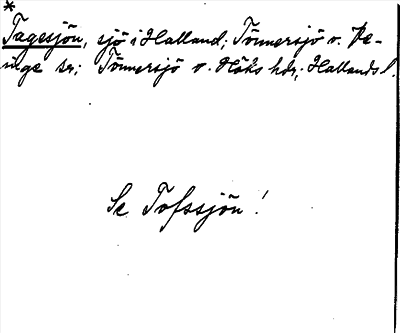 *
Tagesjön, sjö i Halland; Tönnersjö o. Ve-
inge sr; Tönnersjö o. Höks hdr; Hallands l.
Se Tofssjön!